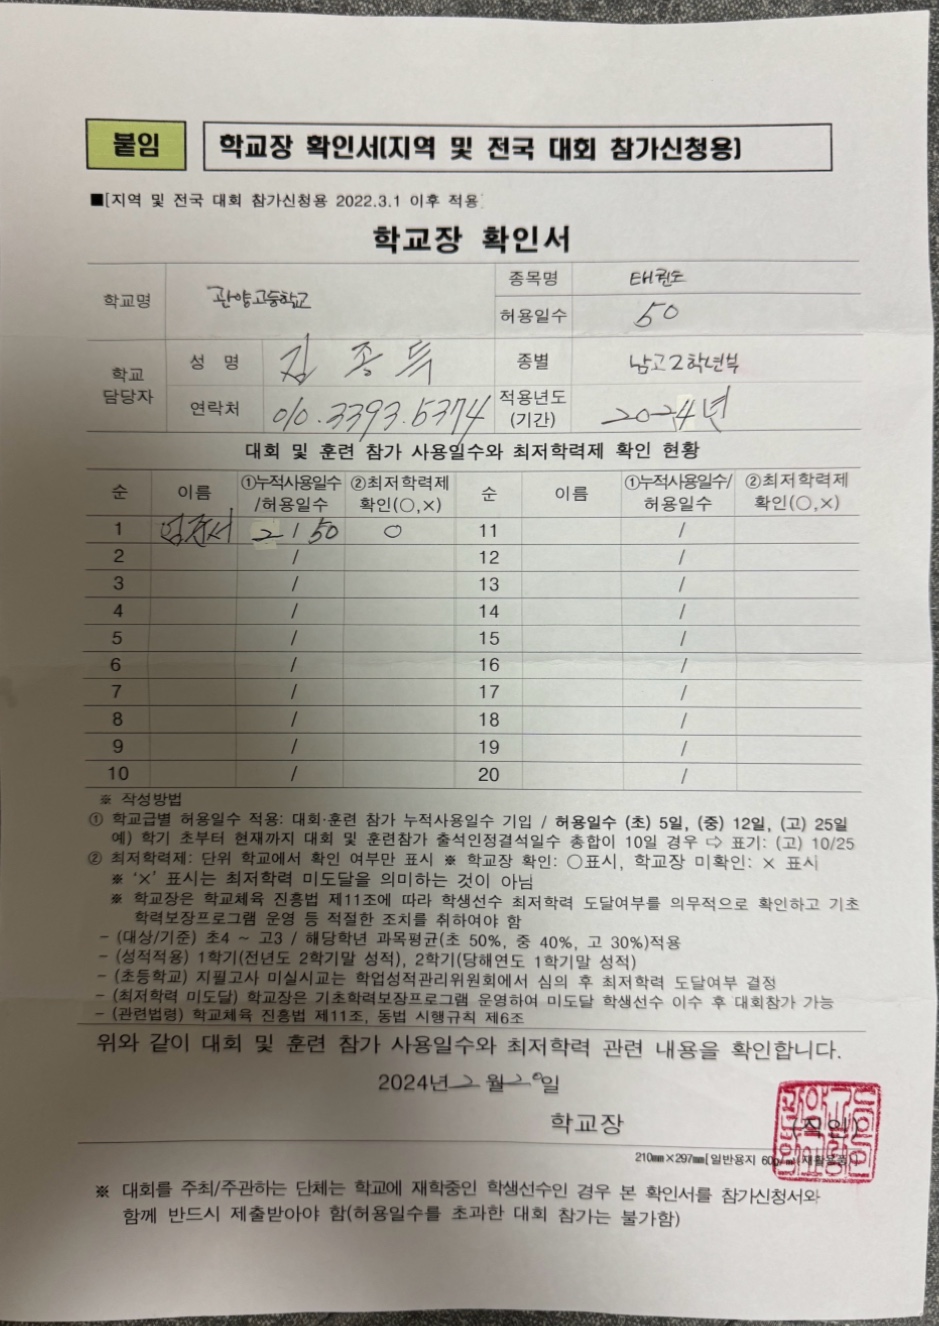 붙임
학교장 확인서(지역 및 전국 대회 참가신청용)
■[지역 및 전국 대회 참가신청용 2022.3.1 이후 적용]
학교장 확인서
학교명 관양고등학교 종목명 태권도
허용일수 50
학교 담당자 성 명 김종득 종별 남고2학년부
연락처 010.3393.5374 적용년도 (기간) 2024년
대회 및 훈련 참가 사용일수와 최저학력제 확인 현황
순 이름 ①누적사용일수/허용일수 ②최저학력제 확인(○,×) 순 이름 ①누적사용일수/허용일수 ②최저학력제 확인(○,×)
1 2 / 50 ○ 11 /
2 / 12 /
3 / 13 /
4 / 14 /
5 / 15 /
6 / 16 /
7 / 17 /
8 / 18 /
9 / 19 /
10 / 20 /
※ 작성방법
① 학교급별 허용일수 적용: 대회·훈련 참가 누적사용일수 기입 / 허용일수 (초) 5일, (중) 12일, (고) 25일
예) 학기 초부터 현재까지 대회 및 훈련참가 출석인정결석일수 총합이 10일 경우 ⇨ 표기: (고) 10/25
② 최저학력제: 단위 학교에서 확인 여부만 표시 ※ 학교장 확인: ○표시, 학교장 미확인: × 표시
※ '×' 표시는 최저학력 미도달을 의미하는 것이 아님
※ 학교장은 학교체육 진흥법 제11조에 따라 학생선수 최저학력 도달여부를 의무적으로 확인하고 기초
학력보장프로그램 운영 등 적절한 조치를 취하여야 함
- (대상/기준) 초4 ~ 고3 / 해당학년 과목평균(초 50%, 중 40%, 고 30%)적용
- (성적적용) 1학기(전년도 2학기말 성적), 2학기(당해연도 1학기말 성적)
- (초등학교) 지필고사 미실시교는 학업성적관리위원회에서 심의 후 최저학력 도달여부 결정
- (최저학력 미도달) 학교장은 기초학력보장프로그램 운영하여 미도달 학생선수 이수 후 대회참가 가능
- (관련법령) 학교체육 진흥법 제11조, 동법 시행규칙 제6조
위와 같이 대회 및 훈련 참가 사용일수와 최저학력 관련 내용을 확인합니다.
2024년 2월 20일
학교장 (직인)
210㎜×297㎜[일반용지 60g/㎡
※ 대회를 주최/주관하는 단체는 학교에 재학중인 학생선수인 경우 본 확인서를 참가신청서와
함께 반드시 제출받아야 함(허용일수를 초과한 대회 참가는 불가함)